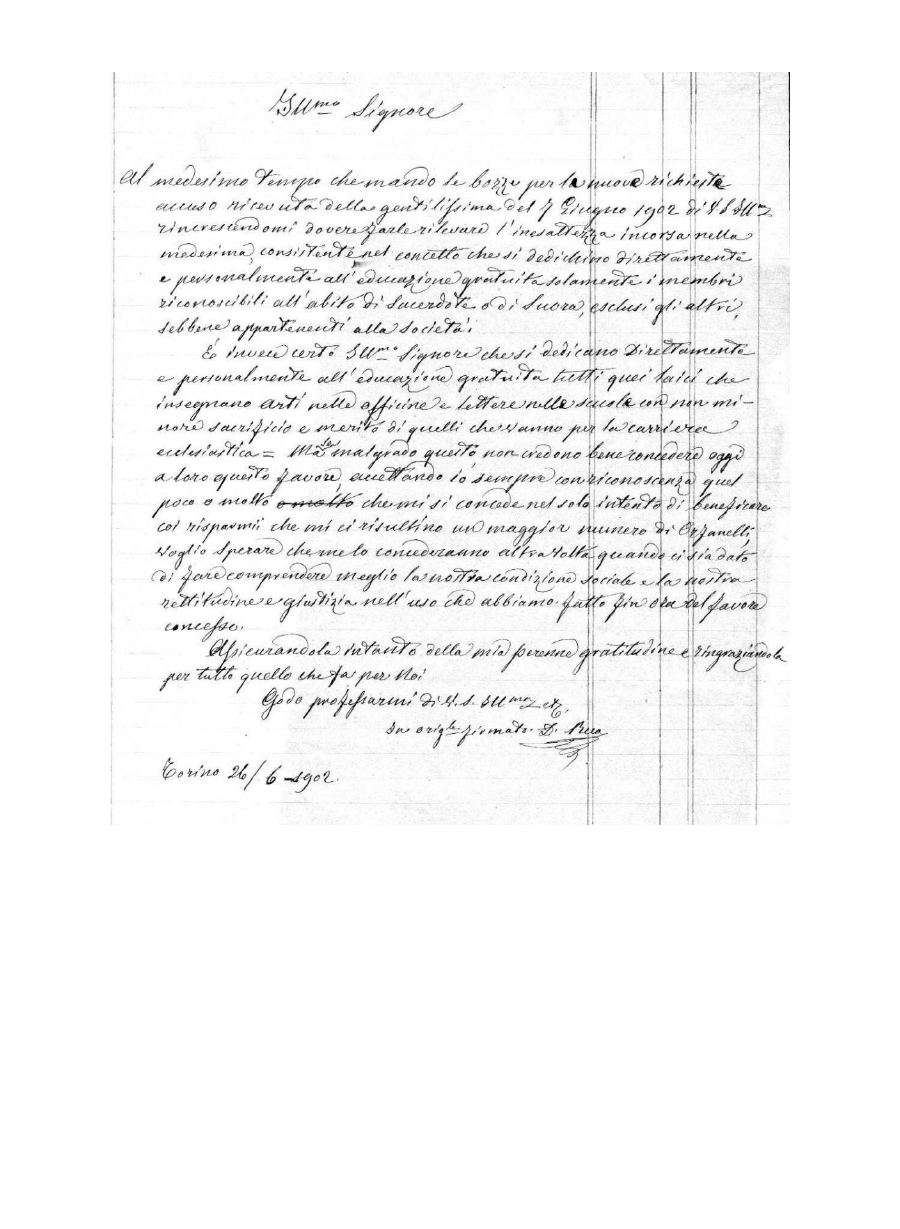 Illmo Signore
Al medesimo tempo che mando le bozze per le nuove richieste
accuso ricevuta della gentilissima del 7 Giugno 1902 di V S Illma
rincrescendomi dovere farle rilevare l'inesattezza incorsa nella
medesima, consistente nel concetto che si dedichino direttamente
e personalmente all'educazione gratuita solamente i membri
riconoscibili all'abito di Sacerdote o di Suora, esclusi gli altri,
sebbene appartenenti alla società.
È invece certo Illmo Signore che si dedicano Direttamente
e personalmente all'educazione gratuita tutti quei laici che
insegnano arti nelle officine e lettere nelle scuole con non mi-
nore sacrificio e merito di quelli che vanno per la carriera
ecclesiastica = Ma se malgrado questo non credono bene concedere oggi
a loro questo favore, accettando io sempre con riconoscenza quel
poco o molto o molto che mi si concede nel solo intento di beneficare
coi risparmii che mi ci risultino un maggior numero di Orfanelli,
voglio sperare che me lo concederanno altra volta quando ci sia dato
di fare comprendere meglio la nostra condizione sociale e la nostra
rettitudine e giustizia nell'uso che abbiamo fatto fin ora del favore
concesso.
Assicurandola intanto della mia perenne gratitudine e ringraziandola
per tutto quello che fa per Noi
Godo professarmi di V. S. Illma
In origle firmato. D. Rua
Torino 26/6-1902.